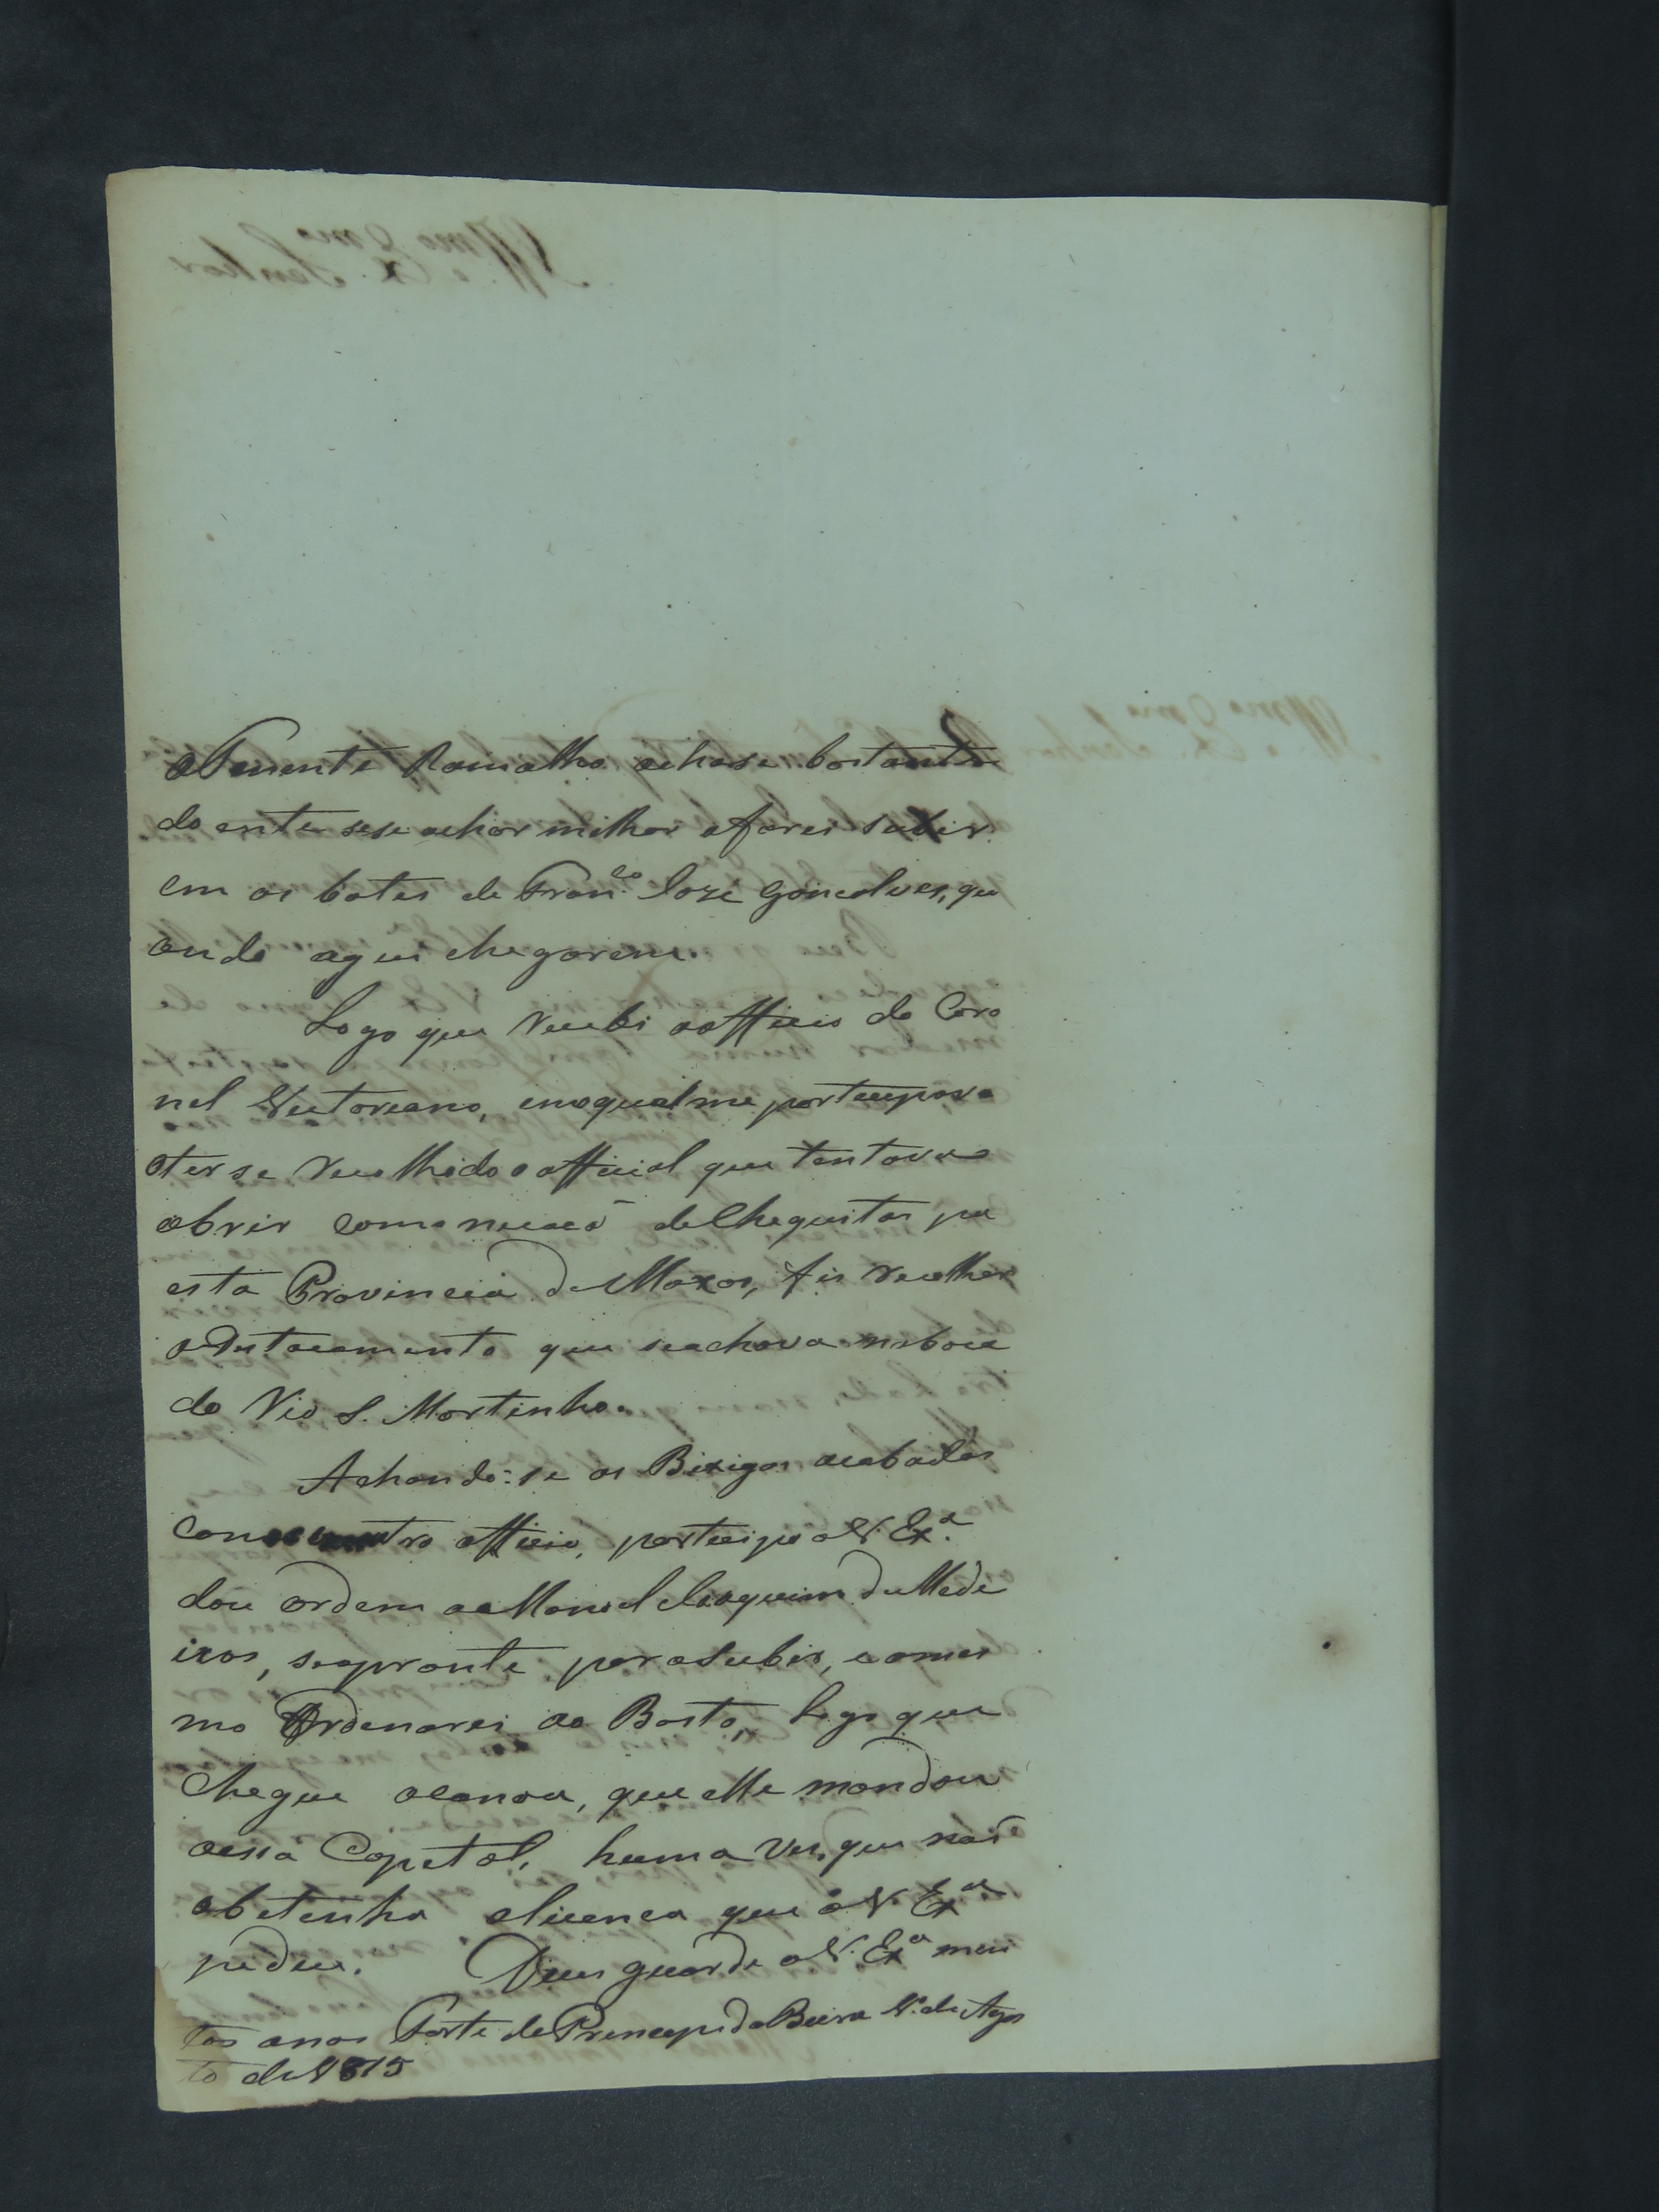 oTenente Ramalho achase bastante
do ente sese achar milhor ofarei subir
em os botes de Fran.co Joze Goncalves, qu
ando aqui chegarem.
Logo que recebi oofficio do Coro
nel Victoreano, enoqualme partecipava
oterse recolhido o official que tentava
abrir comonicacaõ deChequitos pa
esta Provincia deMoxos, fis recolher
oDestacamento que seachava naboca
do Rio S. Martinho.
Achando-se as Bixigas acabadas
como outro officio, partecipo aV. Ex.a
dou ordem aoManoel Joaquim deMede
iros, seapronte parasubir, eomes
mo Ordenarei ao Basto, logo que
chegue acanoa, que elle mandou
aessa Capetal, huma ves, que naõ
obetenha alicenca que a V. Ex.a
pedeu. Deus guarde aV. Ex.a mui
tos anos Forte do Principe daBeira 1.º de Agos
to de 1815